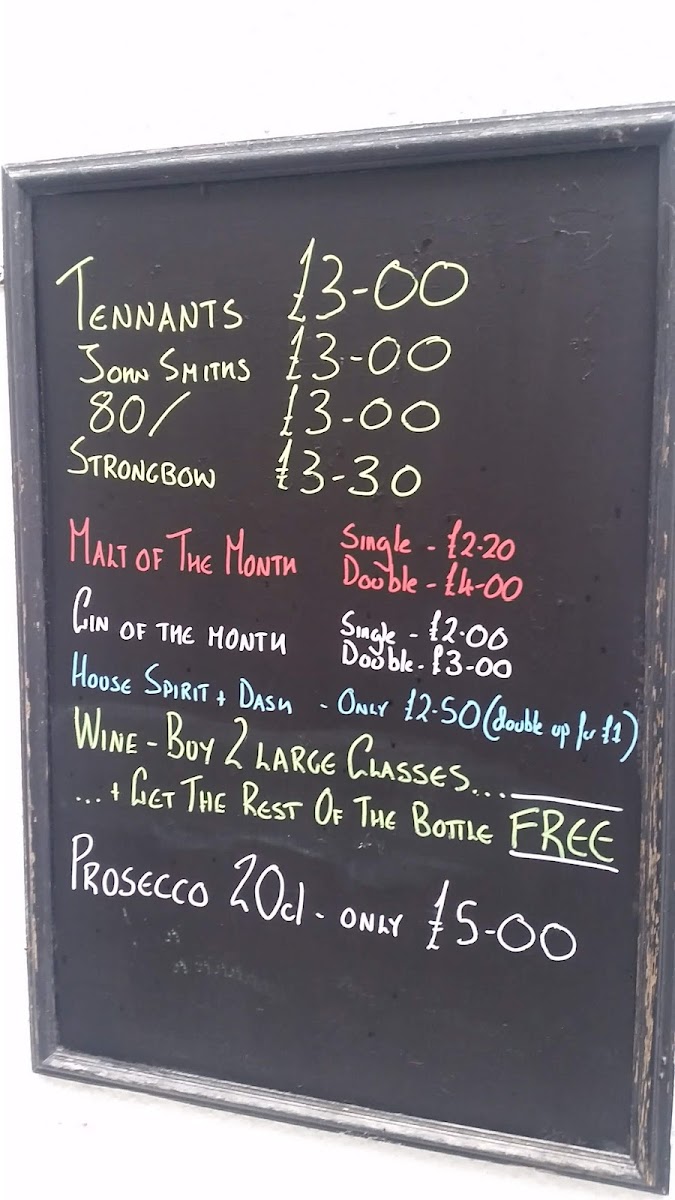 TENNANTS £3-00
JOHN SMITHS £3-00
80/ £3-00
STRONGBOW £3-30
MALT OF THE MONTH Single - £2-20
Double - £4-00
GIN OF THE MONTH Single - £2-00
Double - £3-00
HOUSE SPIRIT + DASH - ONLY £2-50 (double up for £1)
WINE - BUY 2 LARGE GLASSES....
... + GET THE REST OF THE BOTTLE FREE
PROSECCO 20cl - ONLY £5-00